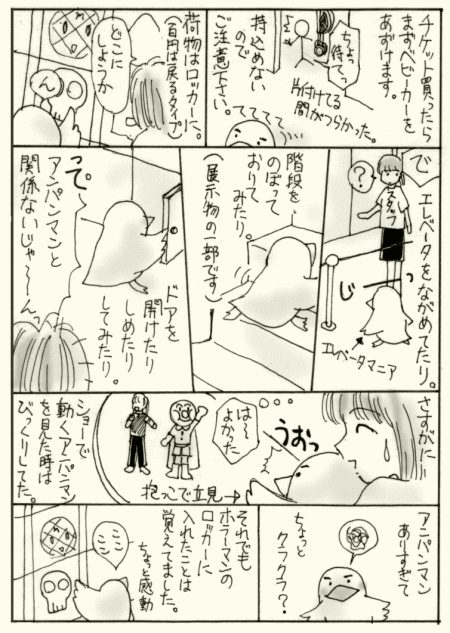 チケット買ったら
まずベビーカーを
あずけます。
ちょっ
待てっ
片付けてる
間がつらかった。
持込めない
ので
ご注意下さい。
テテテテ
荷物はロッカーに。
(百円は戻るタイプ)
どこに
しようか
ん
で
エレベータをながめてたり。
?
スタッフ
じーっ
エレベータマニア
階段を
のぼって
おりて
みたり。
(展示物の一部です)
ドアを
開けたり
しめたり
してみたり。
って
アンパンマンと
関係ないじゃ〜〜ん
さすがに
うおっ
は〜
よかった
抱っこで立見→
ショーで
動くアンパンマン
を見た時は
びっくりしてた。
アンパンマン
ありすぎて
ちょっと
クラクラ?
それでも
ホラーマンの
ロッカーに
入れたことは
覚えてました。
ココ
ちょっと感動